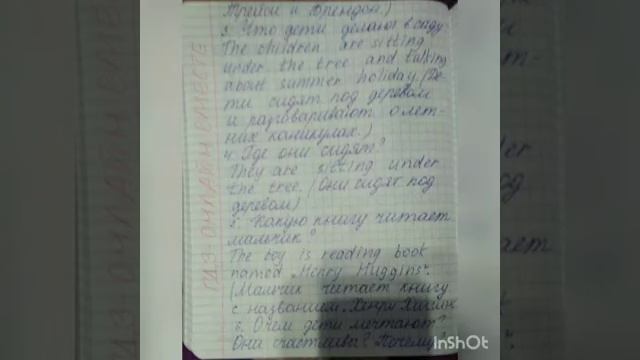 Трейси и Брендой.)
3. Что дети делают в саду
The children are sitting
under the tree and talking
about summer holiday. (Де-
ти сидят под деревом
и разговаривают о лет-
них каникулах.)
4. Где они сидят?
They are sitting under
the tree. (Они сидят под
деревом)
5. Какую книгу читает
мальчик?
The boy is reading book
named „Henry Huggins".
(Мальчик читает книгу
с названием „Хенри Хиггинс
6. О чем дети мечтают?
Они счастливы? Почему?
ГДЗ-ОНЛАЙН ВМЕСТЕ
InShOt